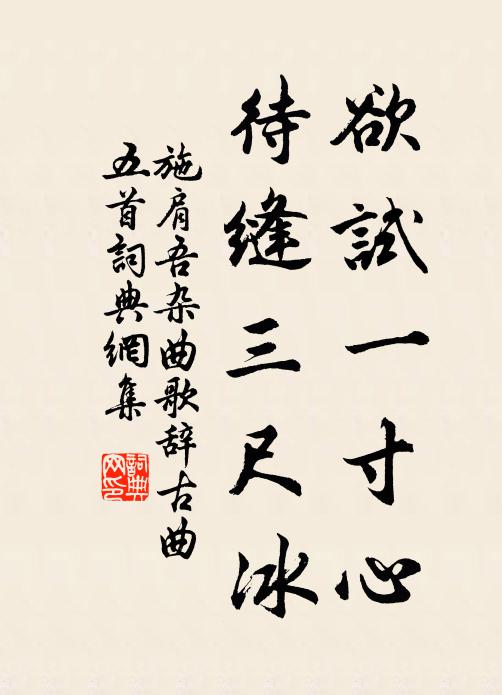 欲試一寸心
待縫三尺冰
施肩吾杂曲歌辞古曲
五首詞典網集
詞典
网印